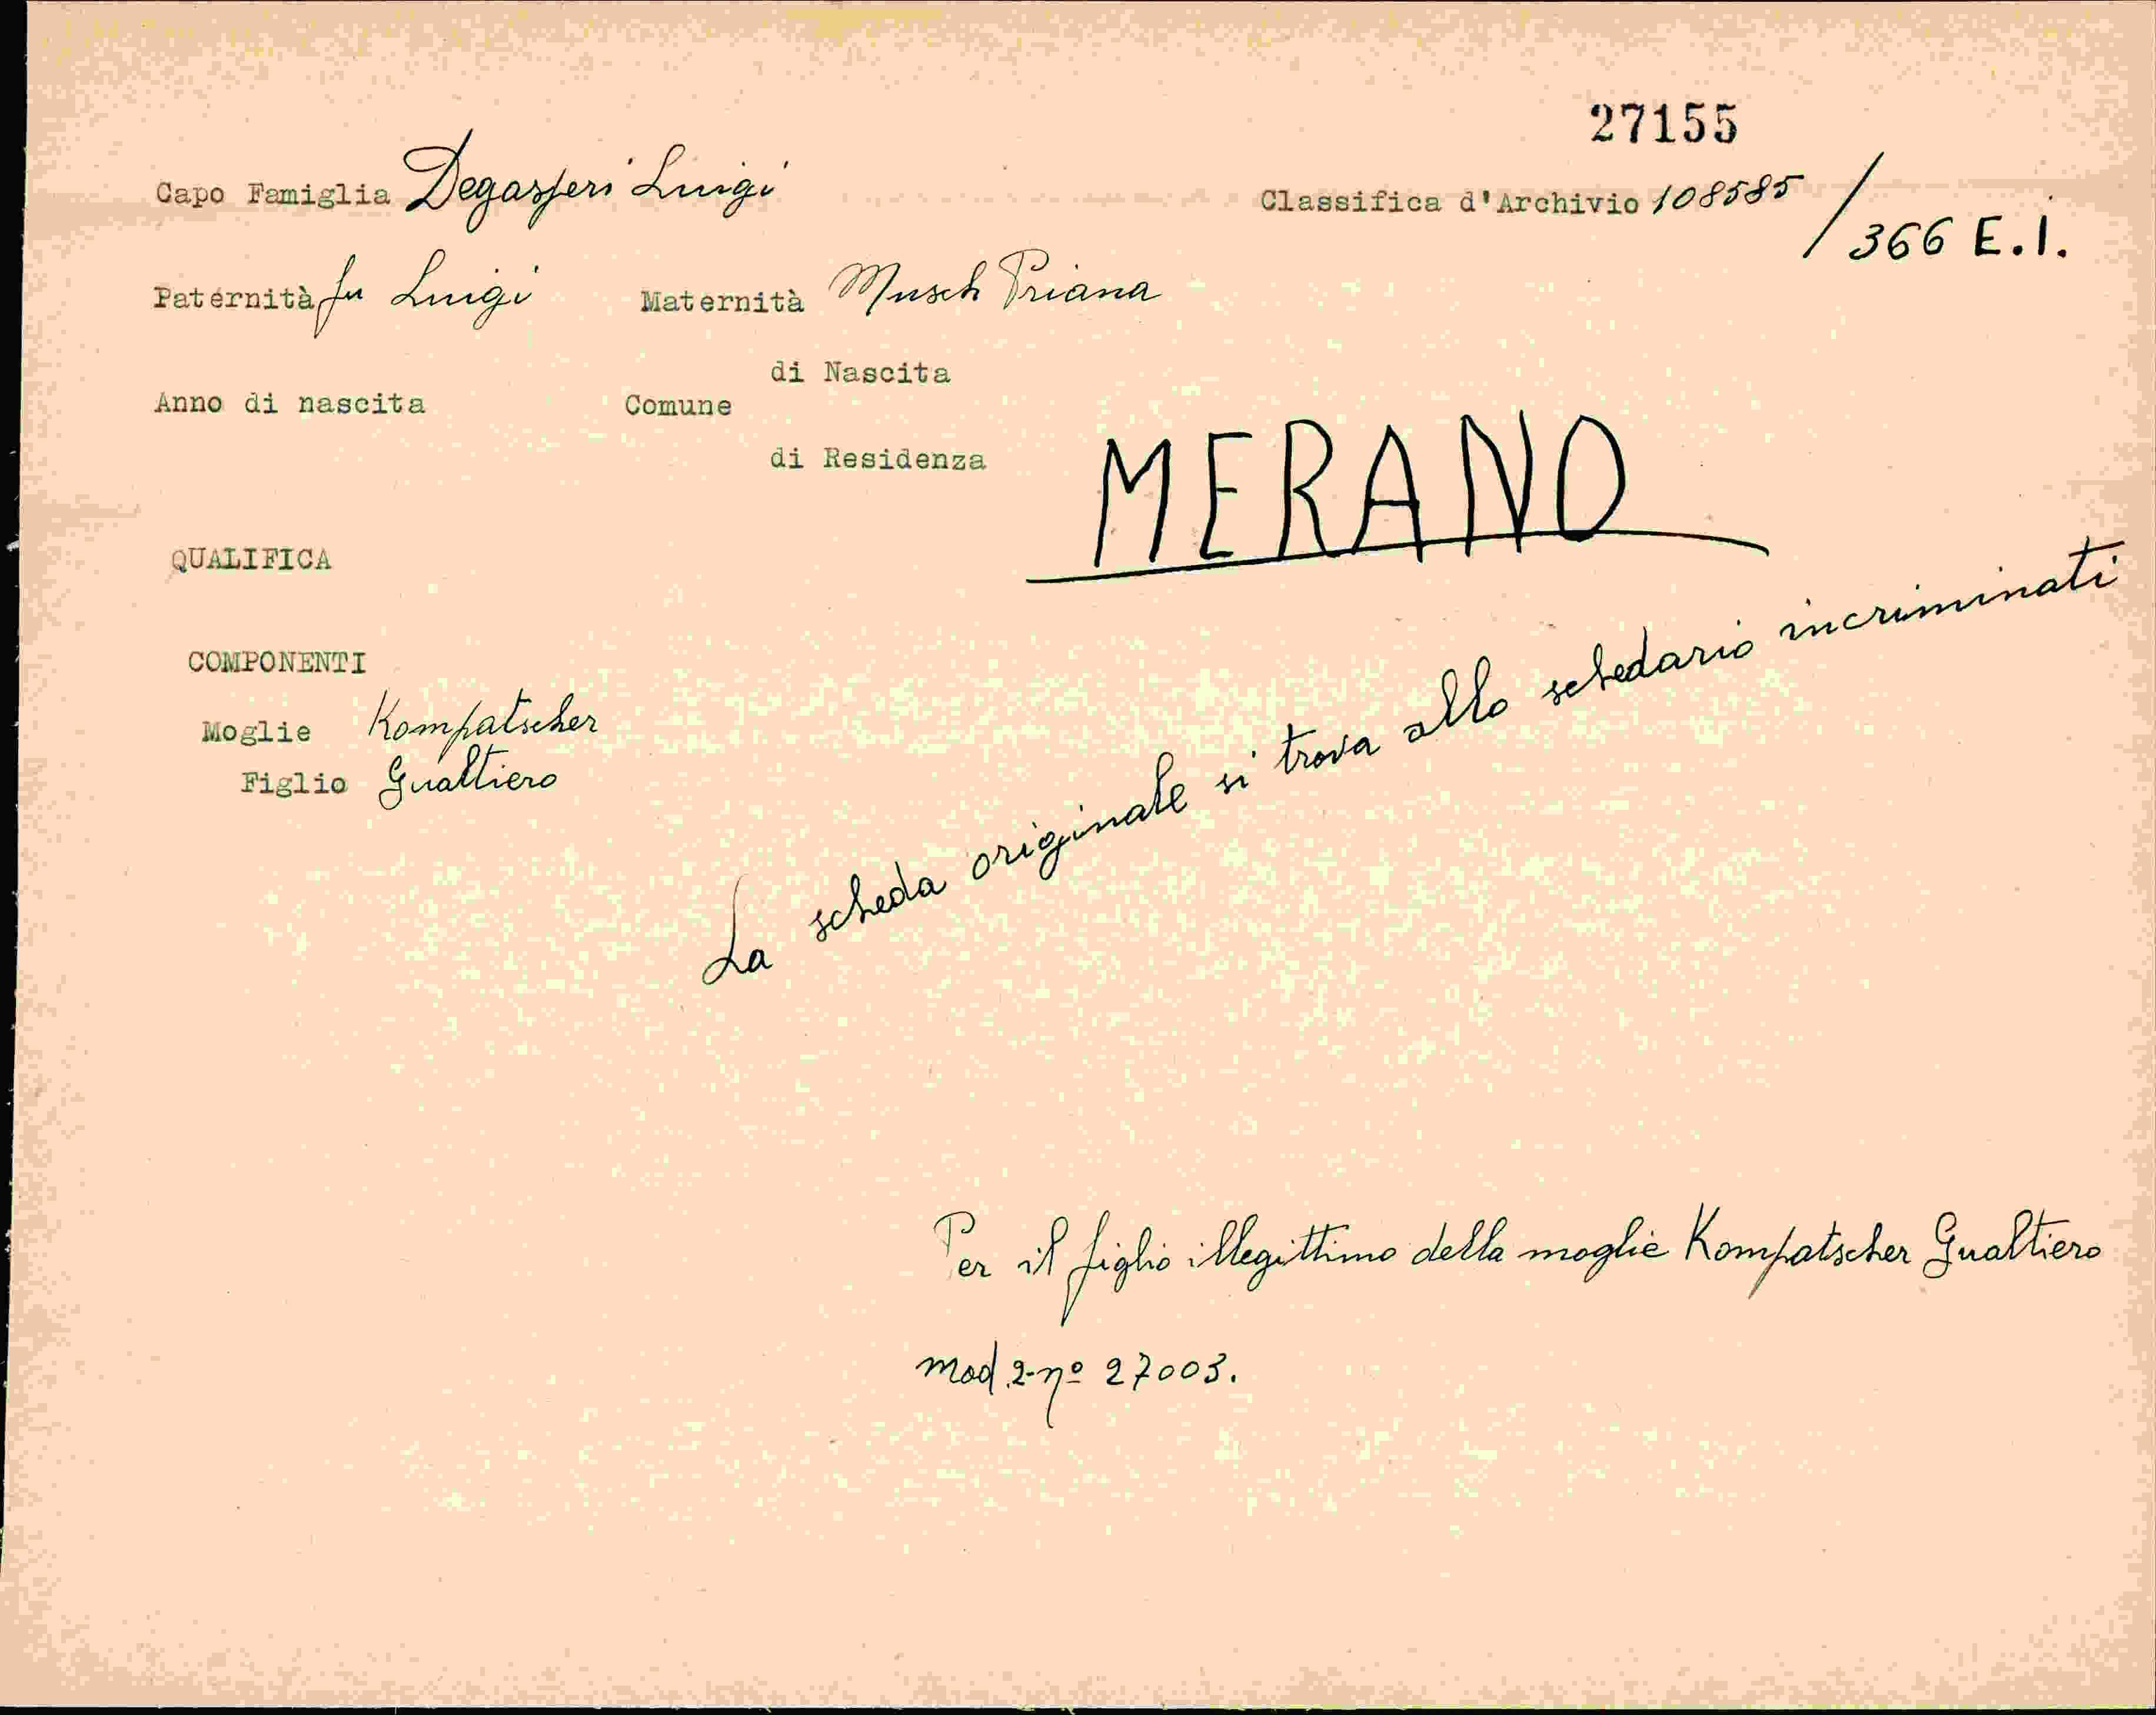 27155
Capo Famiglia Degasperi Luigi
Classifica d'Archivio 108585 / 366 E.I.
Paternità fu Luigi Maternità Musch Priana
di Nascita
Anno di nascita Comune
di Residenza MERANO
QUALIFICA
COMPONENTI
Moglie Kompatscher
Figlio Gualtiero
La scheda originale si trova allo schedario incriminati
Per il figlio illegittimo della moglie Kompatscher Gualtiero
mod. 2-nº 27003.